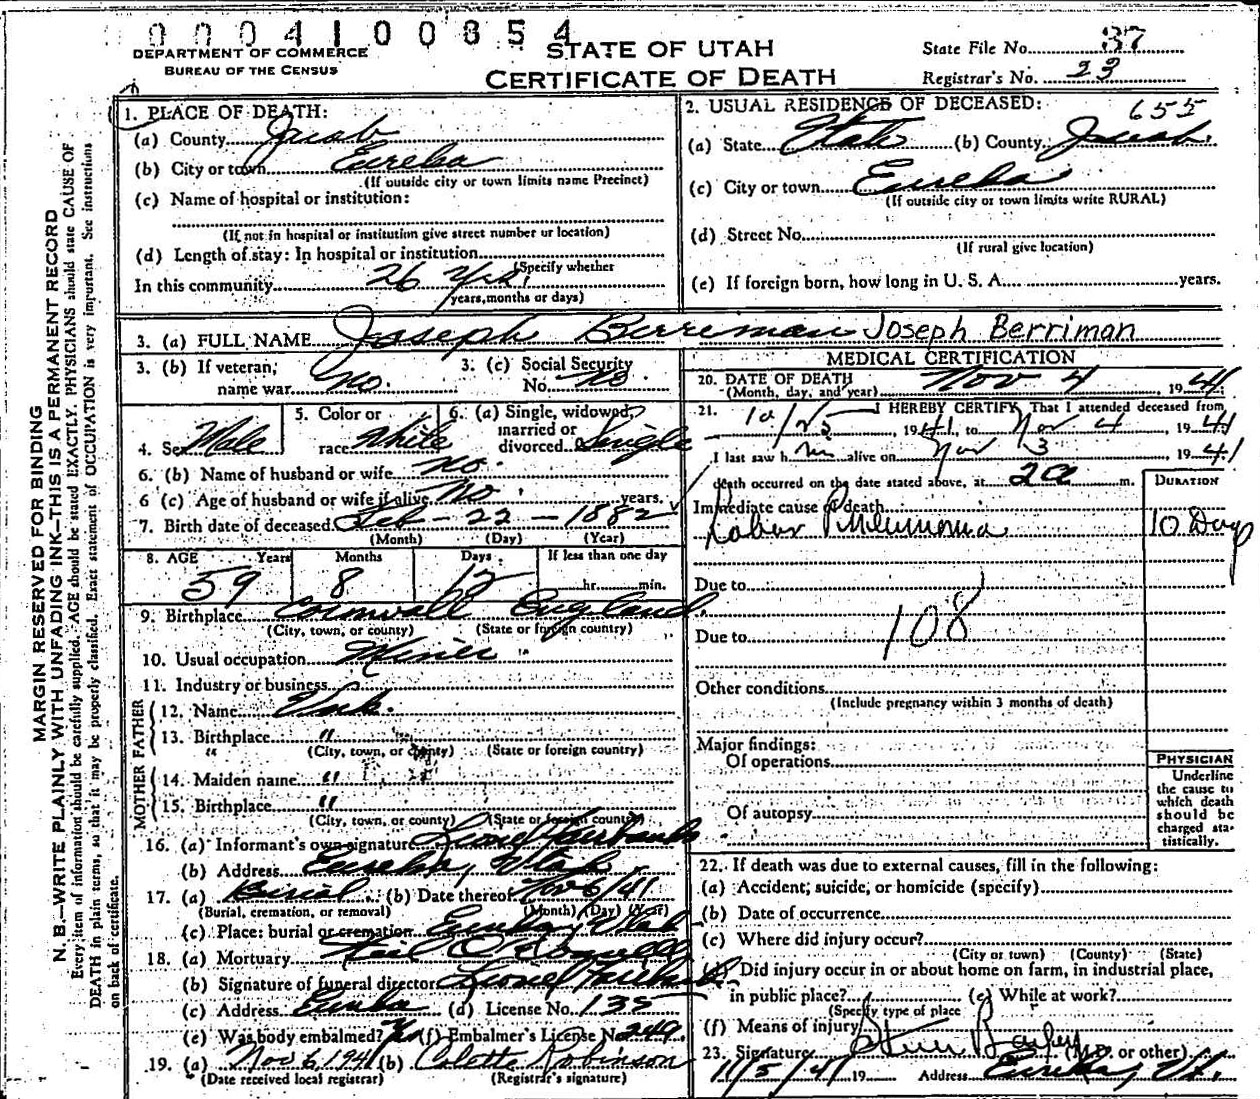 0004100854
DEPARTMENT OF COMMERCE
BUREAU OF THE CENSUS
STATE OF UTAH
CERTIFICATE OF DEATH
State File No. 37
Registrar's No. 23
MARGIN RESERVED FOR BINDING
N. B.—WRITE PLAINLY WITH UNFADING INK—THIS IS A PERMANENT RECORD
Every item of information should be carefully supplied. AGE should be stated EXACTLY. PHYSICIANS should state CAUSE OF
DEATH in plain terms, so that it may be properly classified. Exact statement of OCCUPATION is very important. See instructions
on back of certificate.
1. PLACE OF DEATH:
(a) County Juab
(b) City or town Eureka
(If outside city or town limits name Precinct)
(c) Name of hospital or institution:
(If not in hospital or institution give street number or location)
(d) Length of stay: In hospital or institution
(Specify whether
In this community 26 Yrs.
years, months or days)
2. USUAL RESIDENCE OF DECEASED:
655
(a) State Utah (b) County Juab.
(c) City or town Eureka
(If outside city or town limits write RURAL)
(d) Street No.
(If rural give location)
(e) If foreign born, how long in U. S. A. years.
3. (a) FULL NAME Joseph Berriman Joseph Berriman
3. (b) If veteran, name war no. 3. (c) Social Security No. no
4. Sex Male 5. Color or race White 6. (a) Single, widowed, married or divorced Single
6. (b) Name of husband or wife no.
6 (c) Age of husband or wife if alive No. years.
7. Birth date of deceased Feb - 22 - 1882
(Month) (Day) (Year)
8. AGE Years Months Days If less than one day
59 8 12 hr. min.
9. Birthplace Cornwall England.
(City, town, or county) (State or foreign country)
10. Usual occupation Miner
11. Industry or business
FATHER
12. Name Unk.
13. Birthplace "
(City, town, or county) (State or foreign country)
MOTHER
14. Maiden name "
15. Birthplace "
(City, town, or county) (State or foreign country)
16. (a) Informant's own signature Lionel Fairbanks
(b) Address Eureka, Utah
17. (a) Burial (b) Date thereof Nov 6/41
(Burial, cremation, or removal) (Month) (Day) (Year)
(c) Place: burial or cremation Eureka, Utah
18. (a) Mortuary
(b) Signature of funeral director Lionel Fairbanks
(c) Address Eureka (d) License No. 135
(e) Was body embalmed? Yes (f) Embalmer's License No. 249.
19. (a) Nov 6, 1941 (b) Colette Robinson
(Date received local registrar) (Registrar's signature)
MEDICAL CERTIFICATION
20. DATE OF DEATH Nov 4, 1941
(Month, day, and year)
21. I HEREBY CERTIFY, That I attended deceased from
10/25, 1941, to Nov 4, 1941
I last saw h m alive on Nov 3 1941
death occurred on the date stated above, at 2a m.
DURATION
Immediate cause of death
Lobar Pneumonia 10 Days
Due to
108
Due to
Other conditions
(Include pregnancy within 3 months of death)
Major findings:
Of operations
Of autopsy
PHYSICIAN
Underline
the cause to
which death
should be
charged sta-
tistically.
22. If death was due to external causes, fill in the following:
(a) Accident, suicide, or homicide (specify)
(b) Date of occurrence
(c) Where did injury occur?
(City or town) (County) (State)
(d) Did injury occur in or about home on farm, in industrial place,
in public place? (e) While at work?
(Specify type of place
(f) Means of injury
23. Signature Bailey (M.D. or other)
11/5/41 19 Address Eureka, Ut.